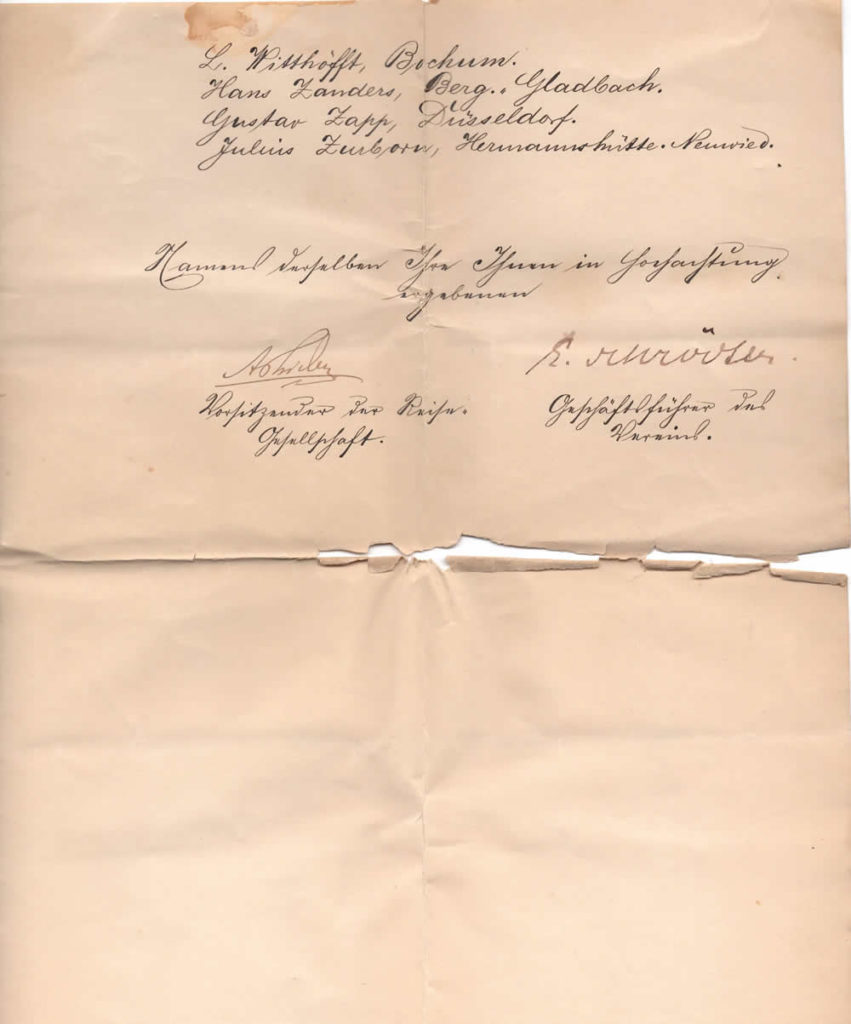 L. Witthöfft, Bochum.
Hans Zanders, Berg.-Gladbach.
Gustav Zapp, Düsseldorf.
Julius Zurborn, Hermannshütte-Neuwied.
Namens derselben Ihre Ihnen in Hochachtung
ergebenen
E. Schrödter.
Vorsitzender der Reise-
Geschäftsführer des
Gesellschaft.
Vereins.